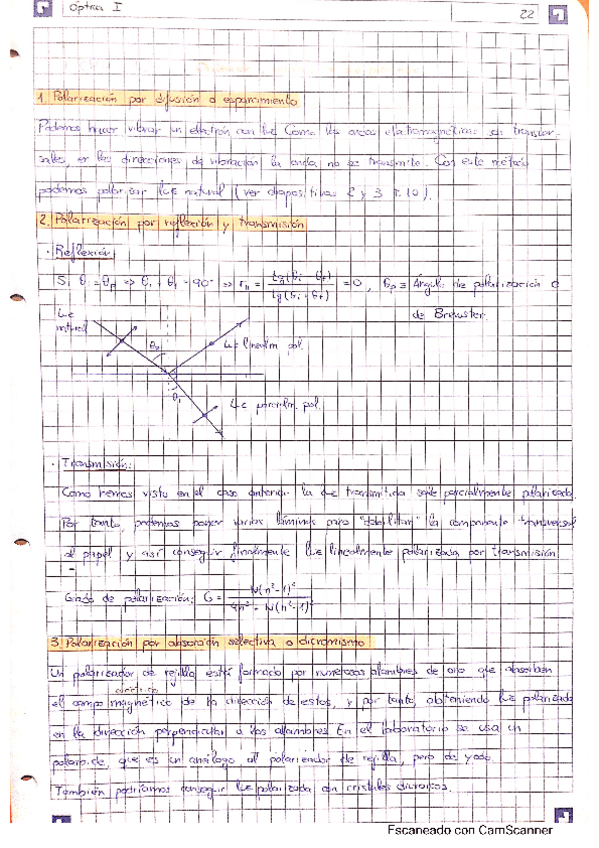 Óptica I
22
1. Polarización por difusión o esparcimiento
Podemos hacer vibrar un electrón con luz. Como las ondas electromagnéticas son transver-
sales, en las direcciones de vibración la onda no se transmite. Con este método
podemos polarizar luz natural (ver diapositivas 2 y 3 T.10).
2. Polarización por reflexión y transmisión
· Reflexión:
Si θi = θp ⇒ θi + θt = 90° ⇒ r∥ = tg(θi - θt) / tg(θi + θt) = 0, θp ≡ Ángulo de polarización o
de Brewster.
Luz
natural
θp
Luz linealm. pol.
θt
Luz parcialm. pol.
· Transmisión:
Como hemos visto en el caso anterior la luz transmitida sale parcialmente polarizada.
Por tanto, podemos poner varias láminas para "debilitar" la componente transversal
al papel y así conseguir finalmente luz linealmente polarizada por transmisión.
Grado de polarización: G = N(n²-1)² / 4n² + N(n²-1)²
3. Polarización por absorción selectiva o dicroísmo
Un polarizador de rejilla está formado por numerosos alambres de oro que absorben
eléctrico
el campo magnético de la dirección de estos, y por tanto, obteniendo luz polarizada
en la dirección perpendicular a los alambres. En el laboratorio se usa un
polaroide, que es un análogo al polarizador de rejilla, pero de yodo.
También podríamos conseguir luz polarizada con cristales dicroicos.
Escaneado con CamScanner